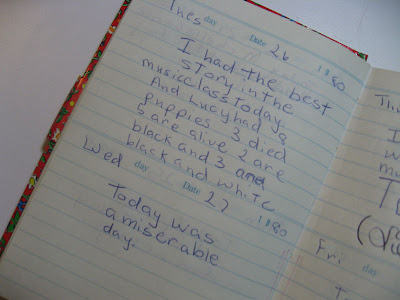 Tues day Date 26 1980
I had the best
story in the
music class today.
And Lucy had 8
puppies 3 died
5 are alive 2 are
black and 3 are
black and white
Wed day Date 27 1980
Today was
a miserable
day.
Thu
I
w
mu
T
Fri day